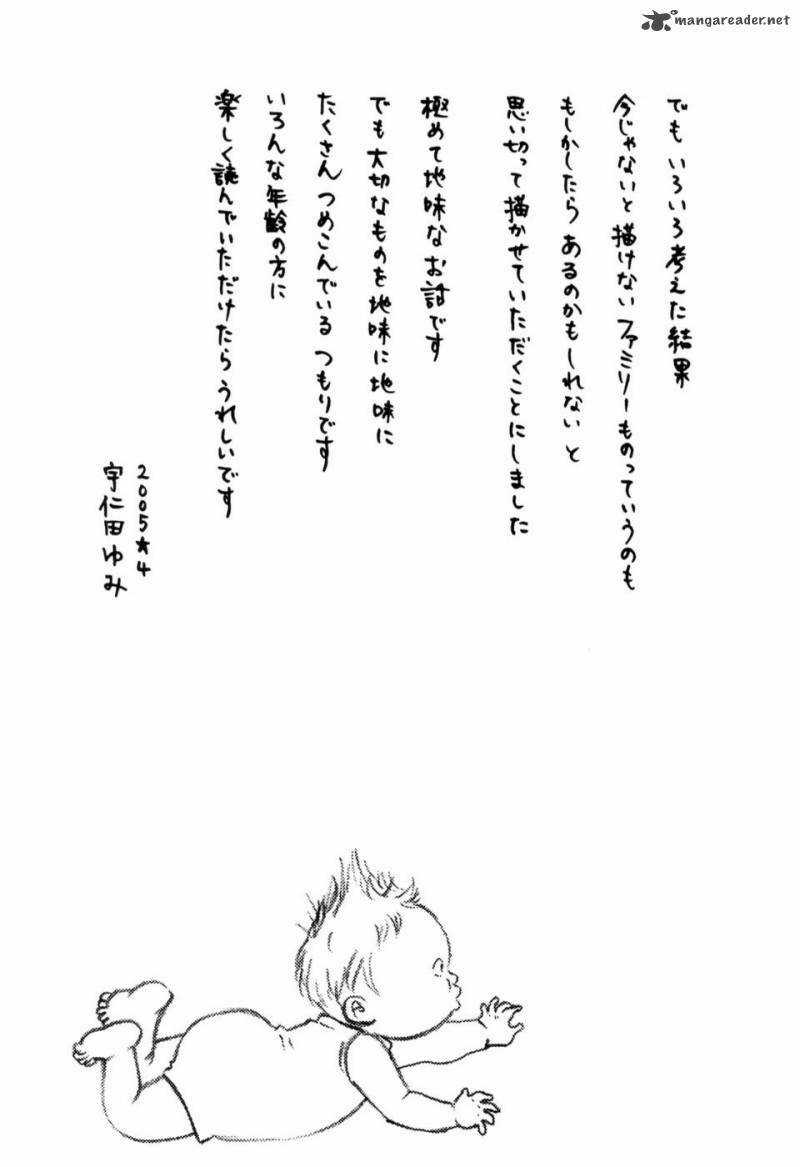 mangareader.net
でも いろいろ考えた結果
今じゃないと描けない ファミリーものっていうのも
もしかしたら あるのかもしれない と
思い切って描かせていただくことにしました
極めて地味なお話です
でも 大切なものを地味に地味に
たくさん つめこんでいる つもりです
いろんな年齢の方に
楽しく読んでいただけたら うれしいです
2005★4
宇仁田ゆみ